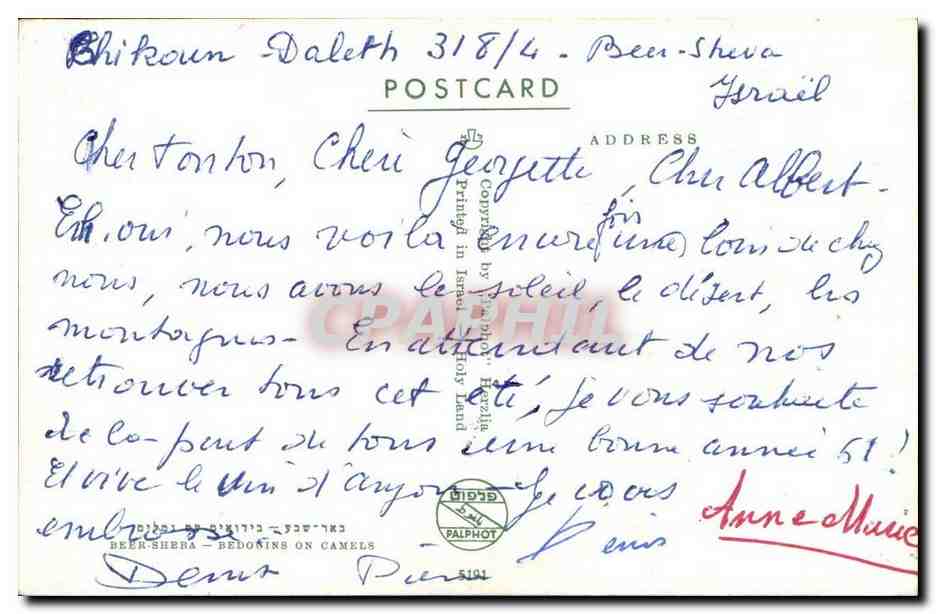 Chikoun - Daleth 318/4 - Beer-Sheva
Israël
POSTCARD
ADDRESS
Cher Tonton, Chère Georgette, Cher Albert -
Eh. oui, nous voilà encore une fois loin de chez
nous, nous avons le soleil, le désert, les
montagnes - En attendant de nos
retrouver tous cet été, je vous souhaite
de la part de tous une bonne année 61!
Et vive le vin d'anjou - Je vous
embrasse -
Anne Marie
Denis
Copyright by "Palphot" Herzlia
Printed in Israel Holy Land
CPAPHIL
פלפוט
PALPHOT
באר-שבע - בידואים עם גמלים
BEER-SHEBA - BEDOUINS ON CAMELS
5191